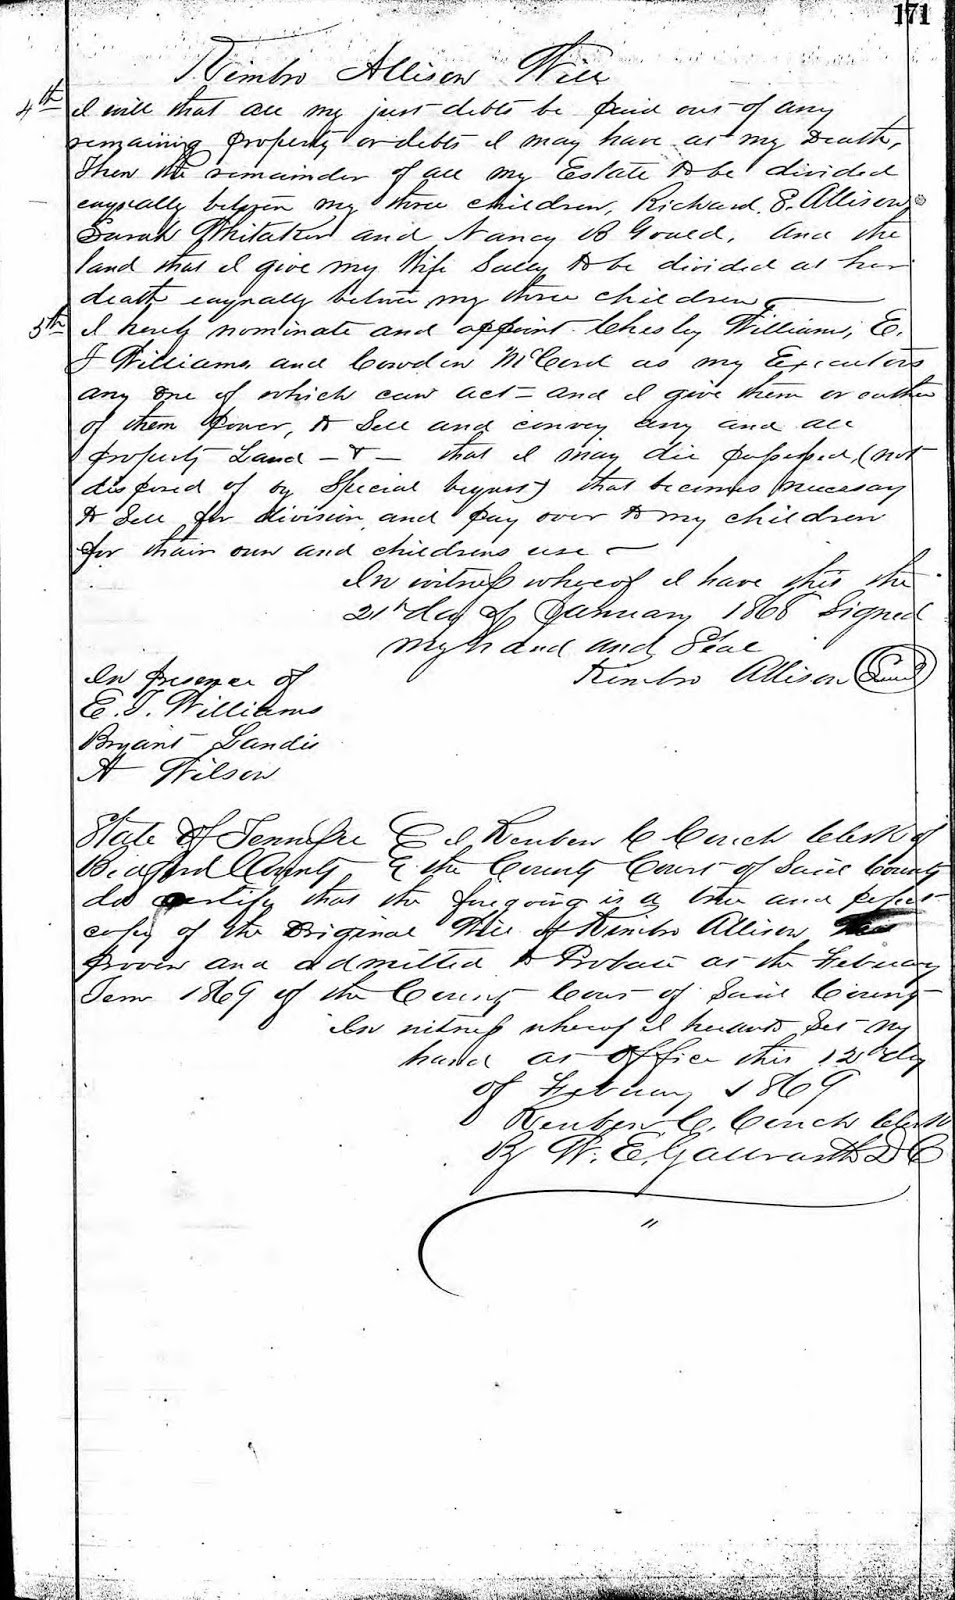 171
Kimbro Allison Will
4th I will that all my just debts be paid out of any
remaining property or debts I may have at my Death,
Then the remainder of all my Estate to be divided
eaqually between my three children, Richard. S. Allison
Sarah Whitaker and Nancy B Gould. and the
land that I give my Wife Sally to be divided at her
death eaqually between my three children
5th I hereby nominate and appoint Chesley Williams, E.
J Williams and Cowden McCord as my Executors
any one of which can act - and I give them or eather
of them power, to Sell and convey any and all
property Land - & - that I may die possessed, (not
disposed of by Special bequest) that becomes necessay
to Sell for division, and pay over to my children
for thair own and childrens use -
In witness whereof I have this the
21st day of January 1868 Signed
my hand and Seal
Kimbro Allison Seal
In presence of
E. J. Williams
Bryant Landis
A Wilson
State of Tennessee I Reuben C Couch Clerk of
Bedford County the County Court of Said County
do certify that the foregoing is a true and perfect
copy of the Original Will of Kimbro Allison
proven and admitted to Probate at the Febuary
Term 1869 of the County Court of Said County
In witness whereof I hereunto Set my
hand at office this 12th day
of Febuary 1869
Reuben C. Couch Clerk
By W. E. Galbreath D C